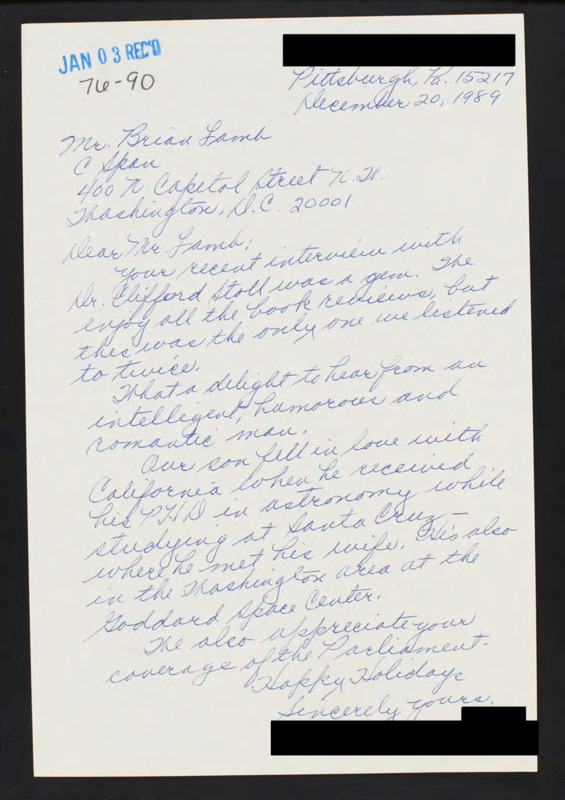 JAN 03 REC'D
76-90
Pittsburgh, Pa. 15217
December 20, 1989
Mr. Brian Lamb
C Span
400 N. Capitol Street N.W.
Washington, D.C. 20001
Dear Mr. Lamb:
Your recent interview with
Dr. Clifford Stoll was a gem. We
enjoy all the book reviews, but
this was the only one we listened
to twice.
What a delight to hear from an
intelligent, humorous and
romantic man.
Our son fell in love with
California when he received
his PHD in astronomy while
studying at Santa Cruz –
where he met his wife. He's also
in the Washington area at the
Goddard Space Center.
We also appreciate your
coverage of the Parliament.
Happy Holidays
Sincerely yours,